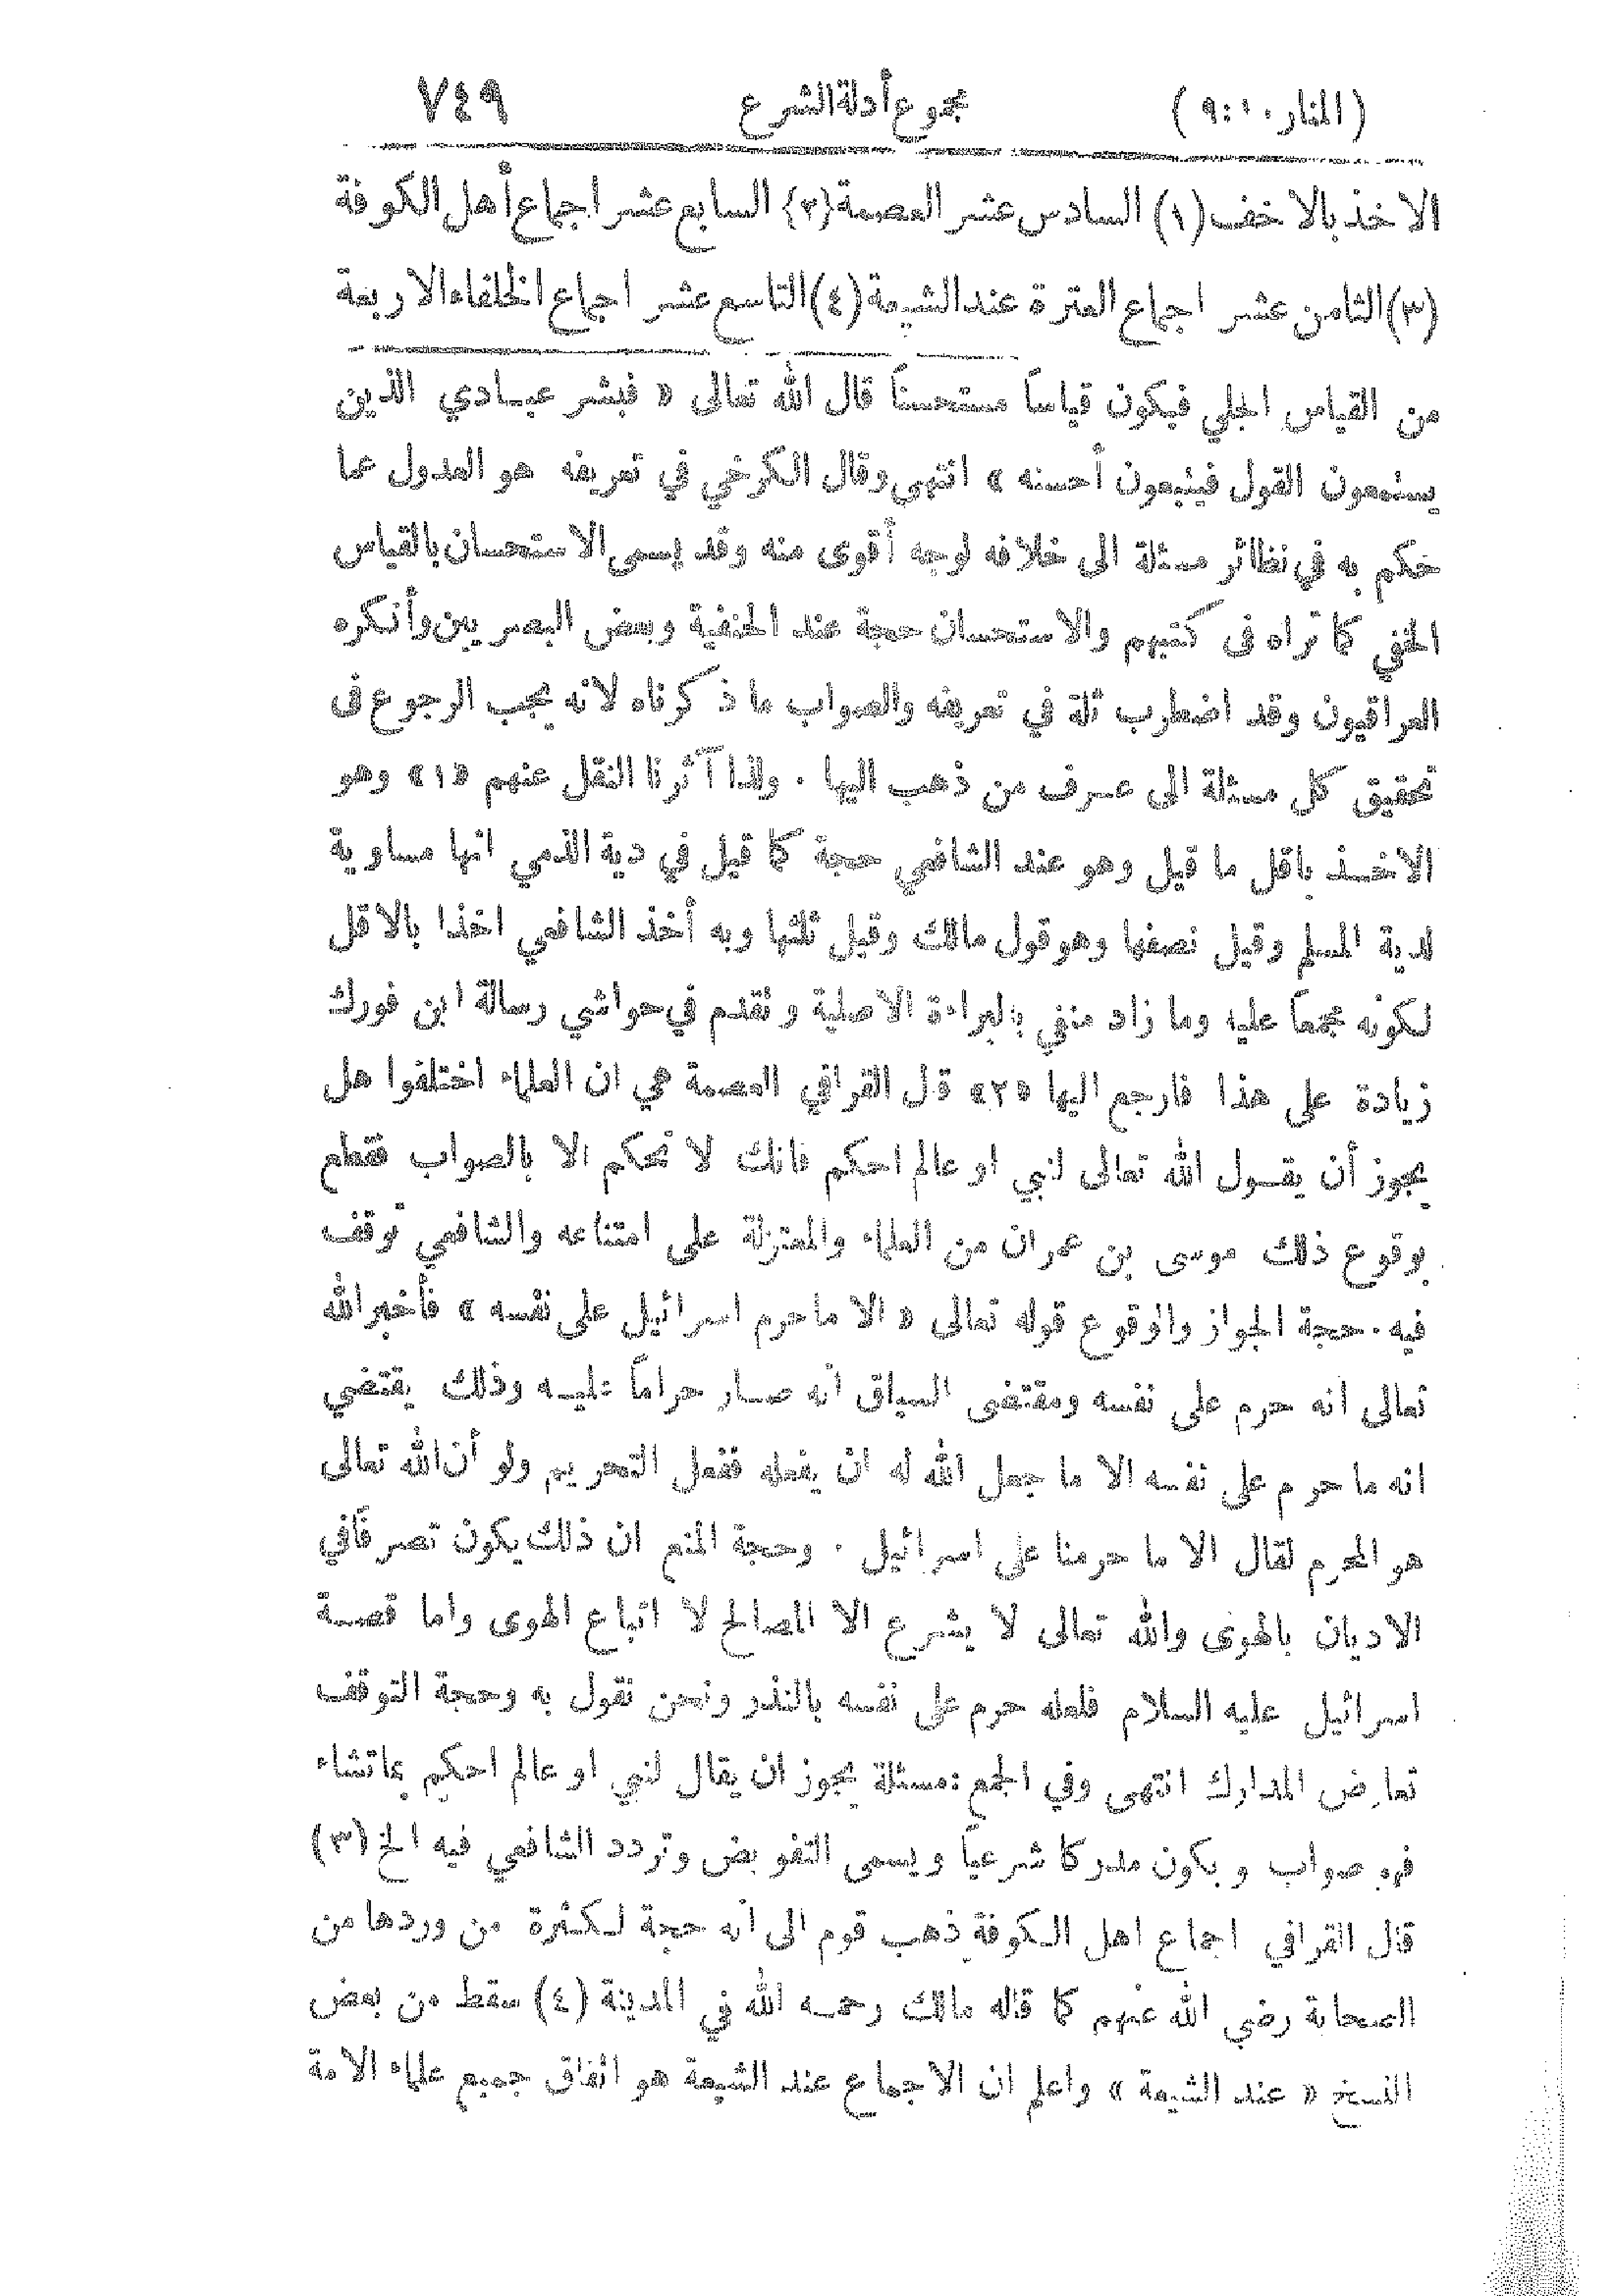 (المنار ١٠ : ٩) مجموع أدلة الشرع ٧٤٩
الاخذ بالاخف (١) السادس عشر العصمة {٢} السابع عشر اجماع أهل الكوفة
(٣) الثامن عشر اجماع العترة عند الشيعة (٤) التاسع عشر اجماع الخلفاء الاربعة
من القياس الجلي فيكون قياساً مستحسناً قال الله تعالى « فبشر عبادي الذين
يستمعون القول فيتبعون أحسنه » انتهى وقال الكرخي في تعريفه هو العدول عما
حكم به في نظائر مسئلة الى خلافه لوجه أقوى منه وقد يسمى الاستحسان بالقياس
الخفي كما تراه فى كتبهم والاستحسان حجة عند الحنفية وبعض البصريين وأنكره
العراقيون وقد اضطرب ثلة في تعريفه والصواب ما ذكرناه لانه يجب الرجوع فى
تحقيق كل مسئلة الى عرف من ذهب اليها . ولذا آثرنا النقل عنهم «١» وهو
الاخذ باقل ما قيل وهو عند الشافعي حجة كما قيل في دية الذمي انها مساوية
لدية المسلم وقيل نصفها وهو قول مالك وقيل ثلثها وبه أخذ الشافعي اخذا بالاقل
لكونه مجمعاً عليه وما زاد منفي بالبراءة الاصلية وتقدم في حواشي رسالة ابن فورك
زيادة على هذا فارجع اليها «٢» قال القرافي العصمة هي ان العلماء اختلفوا هل
يجوز أن يقول الله تعالى لنبي او عالم احكم فانك لا تحكم الا بالصواب فقطع
بوقوع ذلك موسى بن عمران من العلماء والمعتزلة على امتناعه والشافعي توقف
فيه . حجة الجواز والوقوع قوله تعالى « الا ما حرم اسرائيل على نفسه » فأخبر الله
تعالى انه حرم على نفسه ومقتضى السياق انه صار حراماً عليه وذلك يقتضي
انه ما حرم على نفسه الا ما جعل الله له ان يفعله ففعل التحريم ولو أن الله تعالى
هو المحرم لقال الا ما حرمنا على اسرائيل . وحجة المنع ان ذلك يكون تصرفاً في
الاديان بالهوى والله تعالى لا يشرع الا المصالح لا اتباع الهوى واما قصة
اسرائيل عليه السلام فلعله حرم على نفسه بالنذر ونحن نقول به وحجة التوقف
تعارض المدارك انتهى وفي الجمع : مسئلة يجوز ان يقال لنبي او عالم احكم بما تشاء
فهو صواب ويكون مدركا شرعياً ويسمى التفويض وتردد الشافعي فيه الخ (٣)
قال القرافي اجماع اهل الكوفة ذهب قوم الى انه حجة لكثرة من وردها من
الصحابة رضي الله عنهم كما قاله مالك رحمه الله في المدينة (٤) سقط من بعض
النسخ « عند الشيعة » واعلم ان الاجماع عند الشيعة هو اتفاق جميع علماء الامة